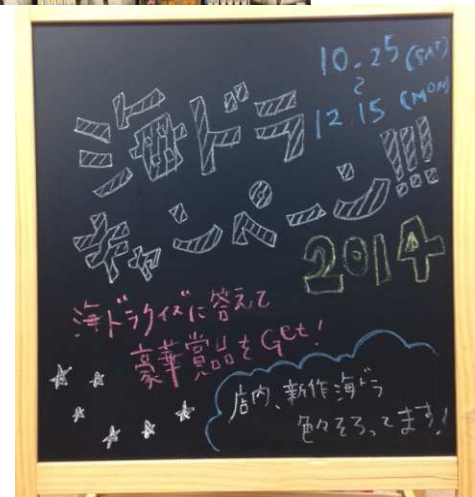 10.25 (SAT)
~
12.15 (MON)
海ドラ
キャンペーン!!!
2014
海ドラクイズに答えて
豪華賞品をGet!
店内、新作海ドラ
色々そろってます!